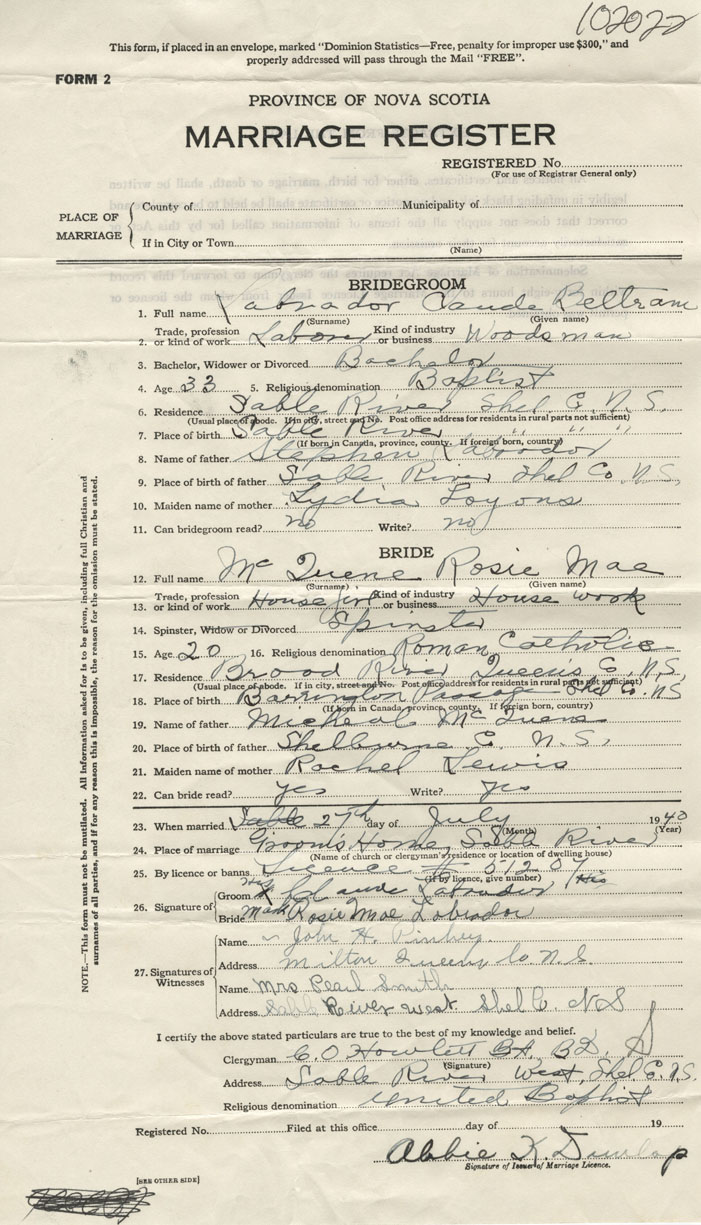 102022
This form, if placed in an envelope, marked "Dominion Statistics—Free, penalty for improper use $300," and
properly addressed will pass through the Mail "FREE".
FORM 2
PROVINCE OF NOVA SCOTIA
MARRIAGE REGISTER
REGISTERED No.
(For use of Registrar General only)
PLACE OF MARRIAGE
County of Municipality of
If in City or Town
(Name)
BRIDEGROOM
1. Full name Labrador Claude Beltram
(Surname) (Given name)
2. Trade, profession or kind of work Laborer Kind of industry or business Woodsman
3. Bachelor, Widower or Divorced Bachelor
4. Age 33 5. Religious denomination Baptist
6. Residence Sable River Shel Co. N.S.
(Usual place of abode. If in city, street and No. Post office address for residents in rural parts not sufficient)
7. Place of birth Sable River " " " "
(If born in Canada, province, county. If foreign born, country)
8. Name of father Stephen Labrador
9. Place of birth of father Sable River Shel Co. N.S.
10. Maiden name of mother Lydia Loyons
11. Can bridegroom read? no Write? no
BRIDE
12. Full name Mc Quene Rosie Mae
(Surname) (Given name)
13. Trade, profession or kind of work House Kind of industry or business House work
14. Spinster, Widow or Divorced Spinster
15. Age 20 16. Religious denomination Roman Catholic
17. Residence Broad River Queens Co. N.S.
(Usual place of abode. If in city, street and No. Post office address for residents in rural parts not sufficient)
18. Place of birth Barrington Passage Shel Co. N.S
(If born in Canada, province, county. If foreign born, country)
19. Name of father Micheal Mc Quene
20. Place of birth of father Shelburne Co. N.S.
21. Maiden name of mother Rachel Lewis
22. Can bride read? yes Write? yes
23. When married Sable 27th day of July 1940
(Month) (Year)
24. Place of marriage Groom's Home, Sable River
(Name of church or clergyman's residence or location of dwelling house)
25. By licence or banns Licence # 51204
(If by licence, give number)
26. Signature of Groom Claude Labrador His
X mark
Bride Rosie Mae Labrador
27. Signatures of Witnesses
Name John H. Pinhey
Address Milton Queens Co N.S.
Name Mrs Pearl Smith
Address Sable River west. Shel Co. N S
I certify the above stated particulars are true to the best of my knowledge and belief.
Clergyman C. O Howlett BA. BD.
(Signature)
Address Sable River West, Shel Co. N.S.
Religious denomination United Baptist
Registered No. Filed at this office day of 19
Abbie K. Dunlap
Signature of Issuer of Marriage Licence.
[SEE OTHER SIDE]
NOTE.—This form must not be mutilated. All information asked for is to be given, including full Christian and
surnames of all parties, and if for any reason this is impossible, the reason for the omission must be stated.